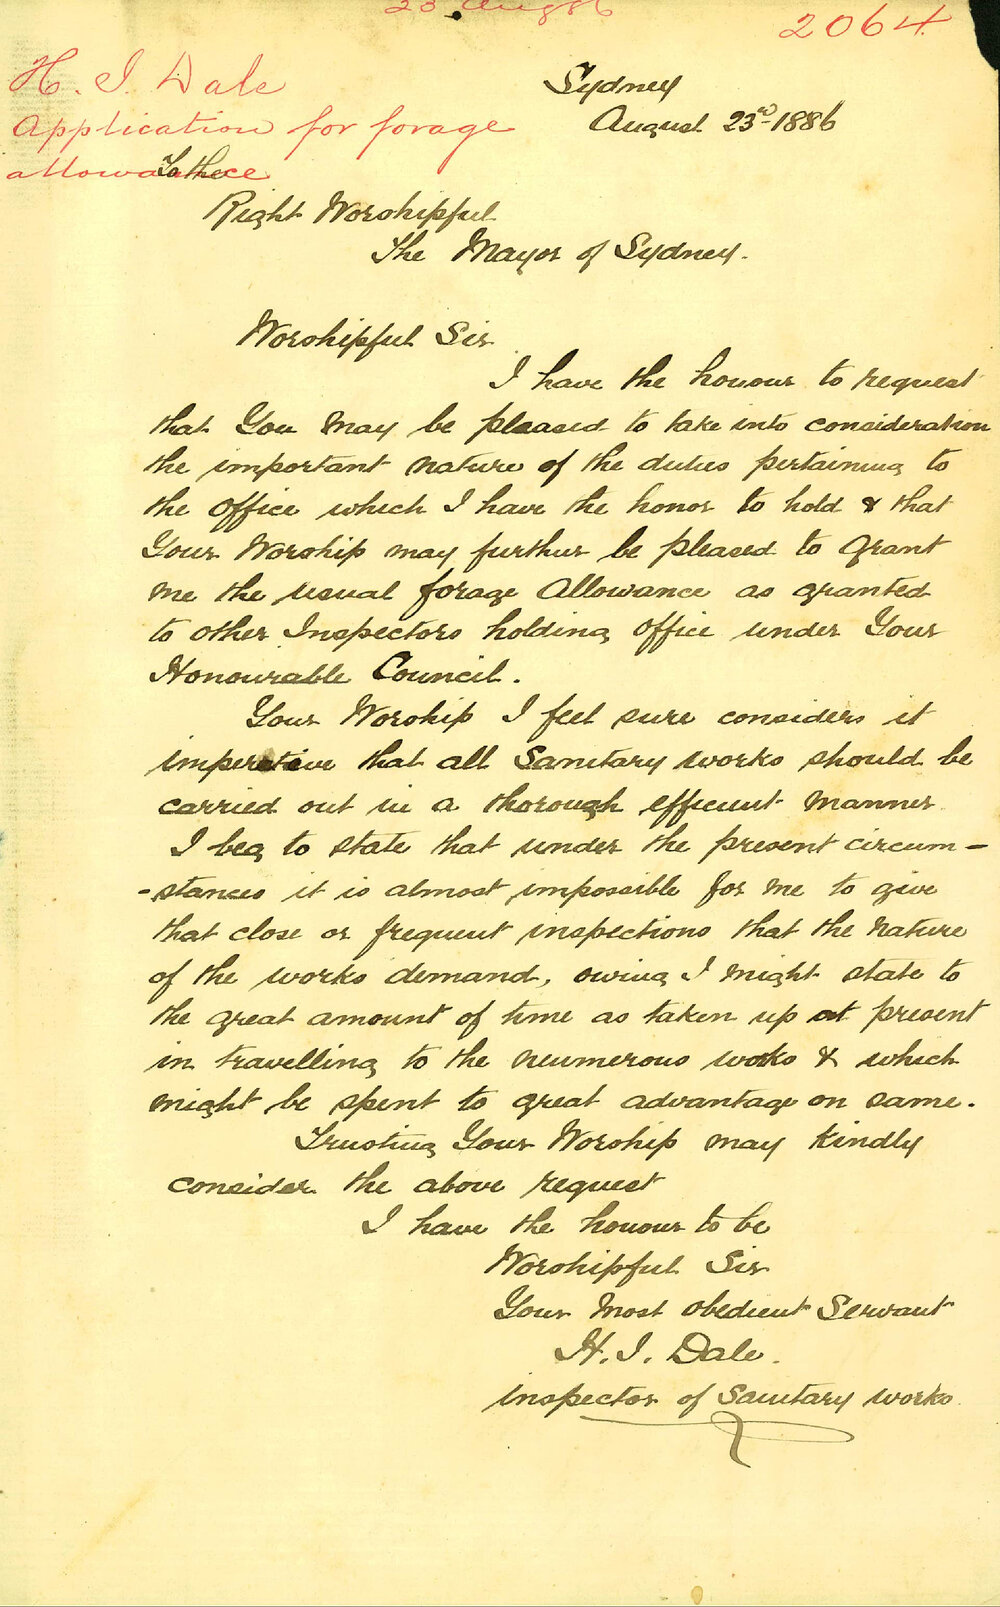 23 Aug 86
2064
H. I. Dale
Application for forage
allowance
Sydney
August 23rd 1886
To the
Right Worshipful
The Mayor of Sydney.
Worshipful Sir
I have the honour to request
that You may be pleased to take into consideration
the important nature of the duties pertaining to
the office which I have the honor to hold & that
Your Worship may further be pleased to grant
me the usual forage Allowance as granted
to other Inspectors holding office under Your
Honourable Council.
Your Worship I feel sure considers it
imperative that all Sanitary works should be
carried out in a thorough efficient manner
I beg to state that under the present circum-
-stances it is almost impossible for me to give
that close or frequent inspections that the nature
of the works demand, owing I might state to
the great amount of time as taken up at present
in travelling to the neumerous works & which
might be spent to great advantage on same.
Trusting Your Worship may kindly
consider the above request
I have the honour to be
Worshipful Sir
Your most obedient Servant
H. I. Dale.
inspector of Sanitary works